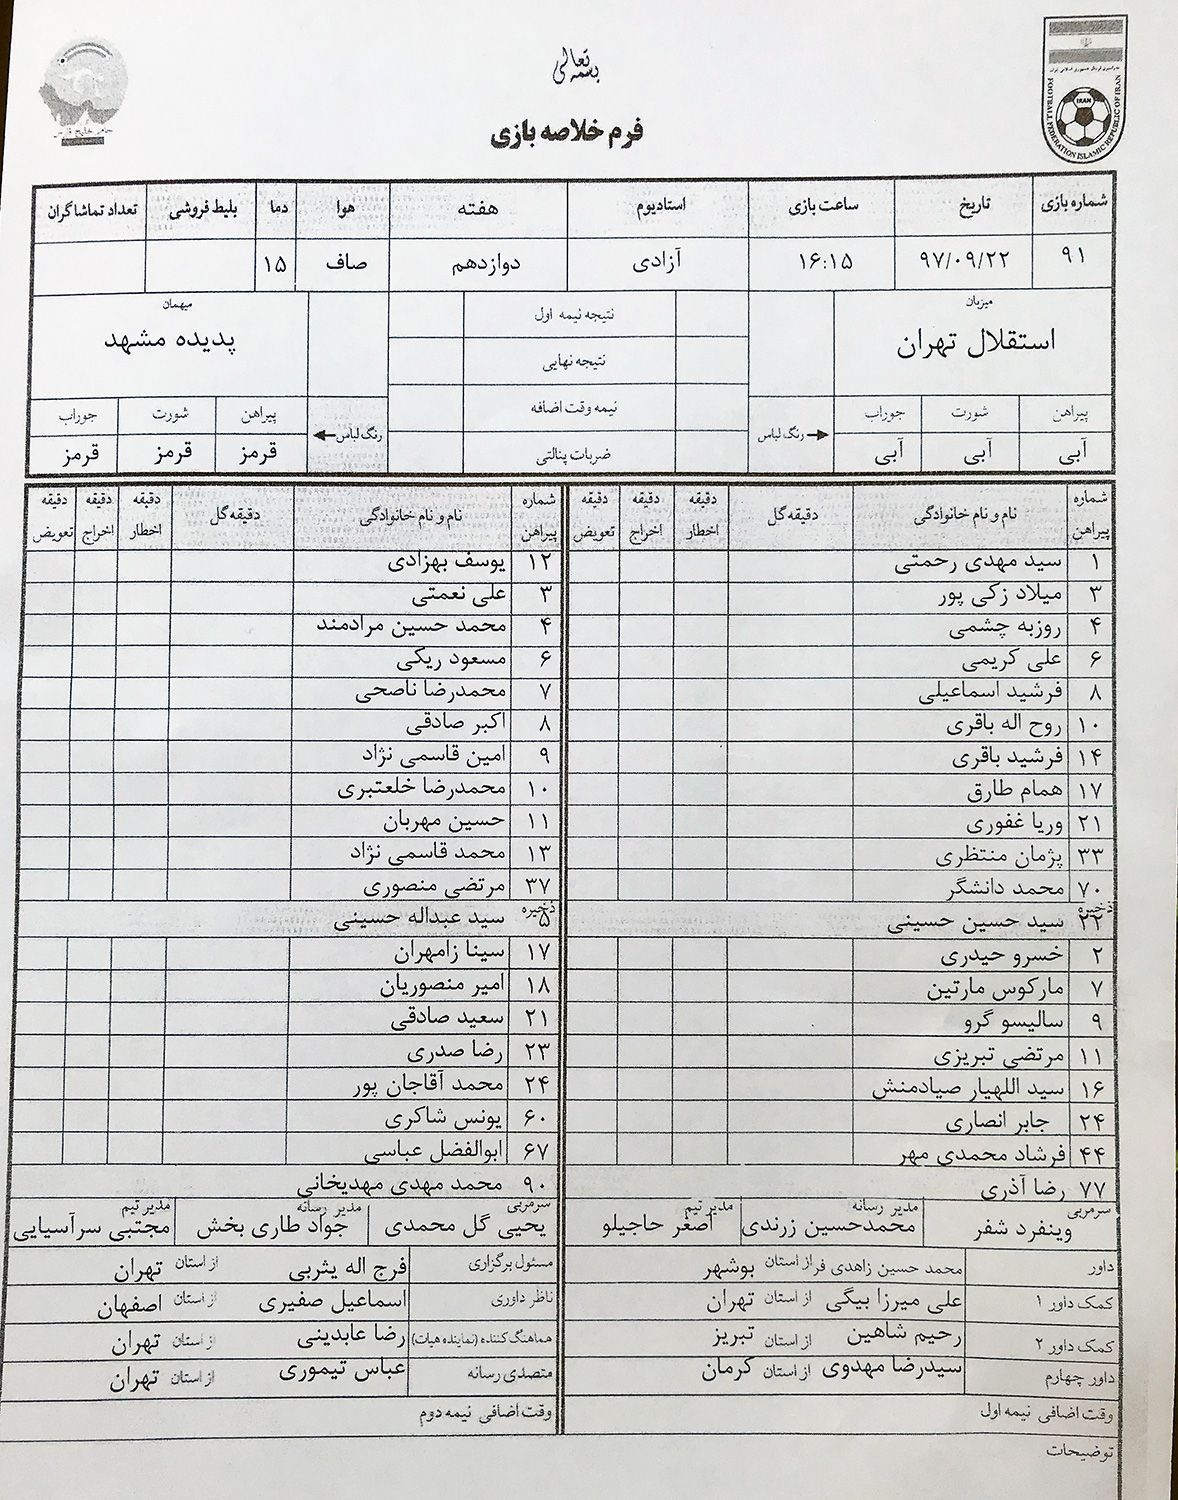 بسمه تعالی
فرم خلاصه بازی
FOOTBALL FEDERATION ISLAMIC REPUBLIC OF IRAN
IRAN
جام خلیج فارس
شماره بازی تاریخ ساعت بازی استادیوم هفته هوا دما بلیط فروشی تعداد تماشاگران
۹۱ ۹۷/۰۹/۲۲ ۱۶:۱۵ آزادی دوازدهم صاف ۱۵
میزبان نتیجه نیمه اول میهمان
استقلال تهران نتیجه نهایی پدیده مشهد
پیراهن شورت جوراب نیمه وقت اضافه پیراهن شورت جوراب
آبی آبی آبی رنگ لباس ضربات پنالتی رنگ لباس قرمز قرمز قرمز
شماره پیراهن نام و نام خانوادگی دقیقه گل دقیقه اخطار دقیقه اخراج دقیقه تعویض شماره پیراهن نام و نام خانوادگی دقیقه گل دقیقه اخطار دقیقه اخراج دقیقه تعویض
۱ سید مهدی رحمتی ۱۲ یوسف بهزادی
۳ میلاد زکی پور ۳ علی نعمتی
۴ روزبه چشمی ۴ محمد حسین مرادمند
۶ علی کریمی ۶ مسعود ریگی
۸ فرشید اسماعیلی ۷ محمدرضا ناصحی
۱۰ روح اله باقری ۸ اکبر صادقی
۱۴ فرشید باقری ۹ امین قاسمی نژاد
۱۷ همام طارق ۱۰ محمدرضا خلعتبری
۲۱ وریا غفوری ۱۱ حسین مهربان
۳۳ پژمان منتظری ۱۳ محمد قاسمی نژاد
۷۰ محمد دانشگر ۳۷ مرتضی منصوری
ذخیره ۲۲ سید حسین حسینی ذخیره ۵ سید عبداله حسینی
۲ خسرو حیدری ۱۷ سینا زامهران
۷ مارکوس مارتین ۱۸ امیر منصوریان
۹ سالیسو گرو ۲۱ سعید صادقی
۱۱ مرتضی تبریزی ۲۳ رضا صدری
۱۶ سید اللهیار صیادمنش ۲۴ محمد آقاجان پور
۲۴ جابر انصاری ۶۰ یونس شاکری
۴۴ فرشاد محمدی مهر ۶۷ ابوالفضل عباسی
۷۷ رضا آذری ۹۰ محمد مهدی مهدیخانی
سرمربی وینفرد شفر مدیر رسانه محمدحسین زرندی مدیر تیم اصغر حاجیلو سرمربی یحیی گل محمدی مدیر رسانه جواد طاری بخش مدیر تیم مجتبی سرآسیایی
داور محمد حسین زاهدی فر از استان بوشهر مسئول برگزاری فرج اله یثربی از استان تهران
کمک داور ۱ علی میرزا بیگی از استان تهران ناظر داوری اسماعیل صفیری از استان اصفهان
کمک داور ۲ رحیم شاهین از استان تبریز هماهنگ کننده (نماینده هیات) رضا عابدینی از استان تهران
داور چهارم سیدرضا مهدوی از استان کرمان متصدی رسانه عباس تیموری از استان تهران
وقت اضافی نیمه اول وقت اضافی نیمه دوم
توضیحات